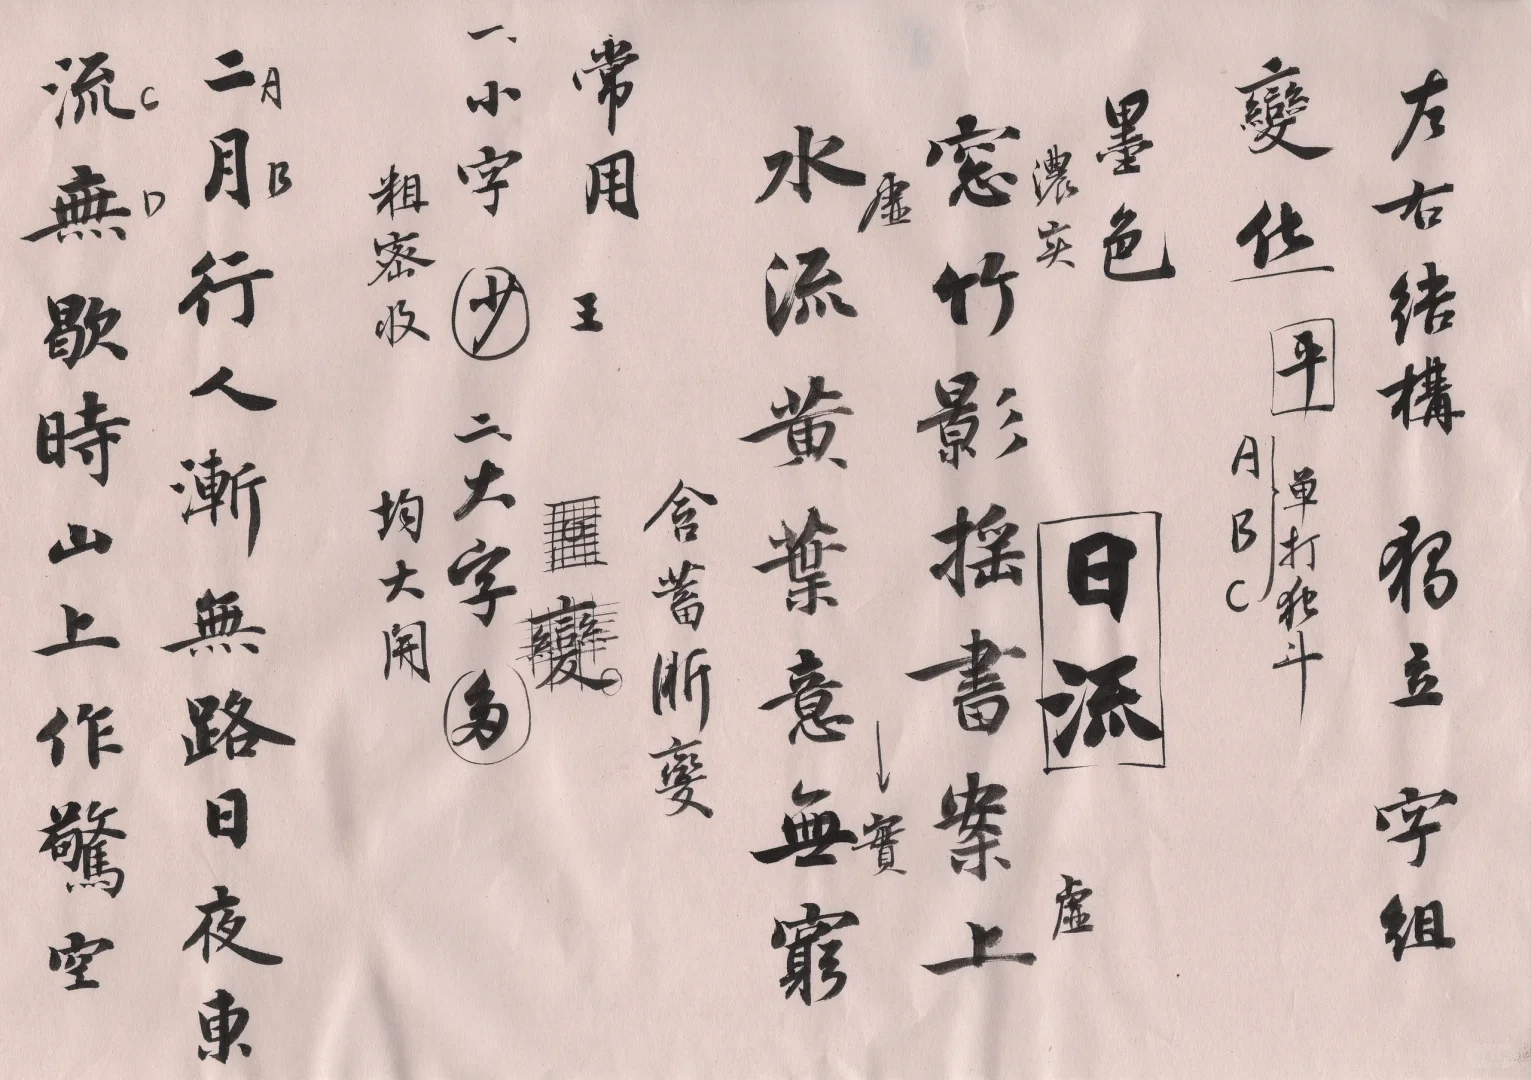 左右結構 独立 字組
變化 平
单打独斗
A B C
墨色
濃实
虚
日流
窓竹影摇書案上
虚
實
水流黄葉意無窮
含蓄渐變
常用 王
變
一、小字 少 二、大字 多
粗密收
均大開
二月行人漸無路日夜東
A
B
流無歇時山上作驚空
C
D